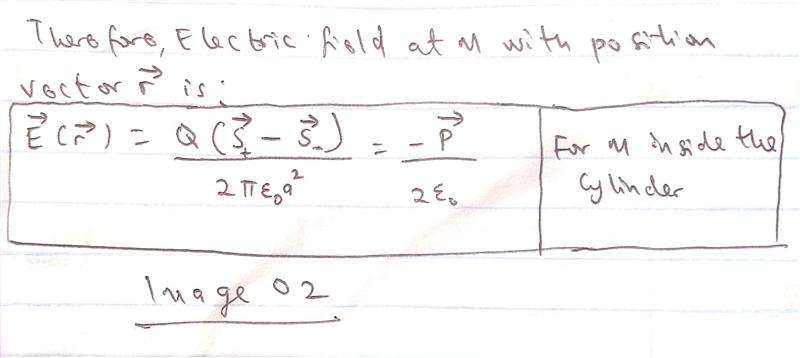 Therefore, Electric field at M with position
vector r⃗ is:
E⃗(r⃗) = Q(S⃗₊ − S⃗₋) / 2πε₀a² = −P⃗ / 2ε₀
For M inside the
Cylinder
Image 02